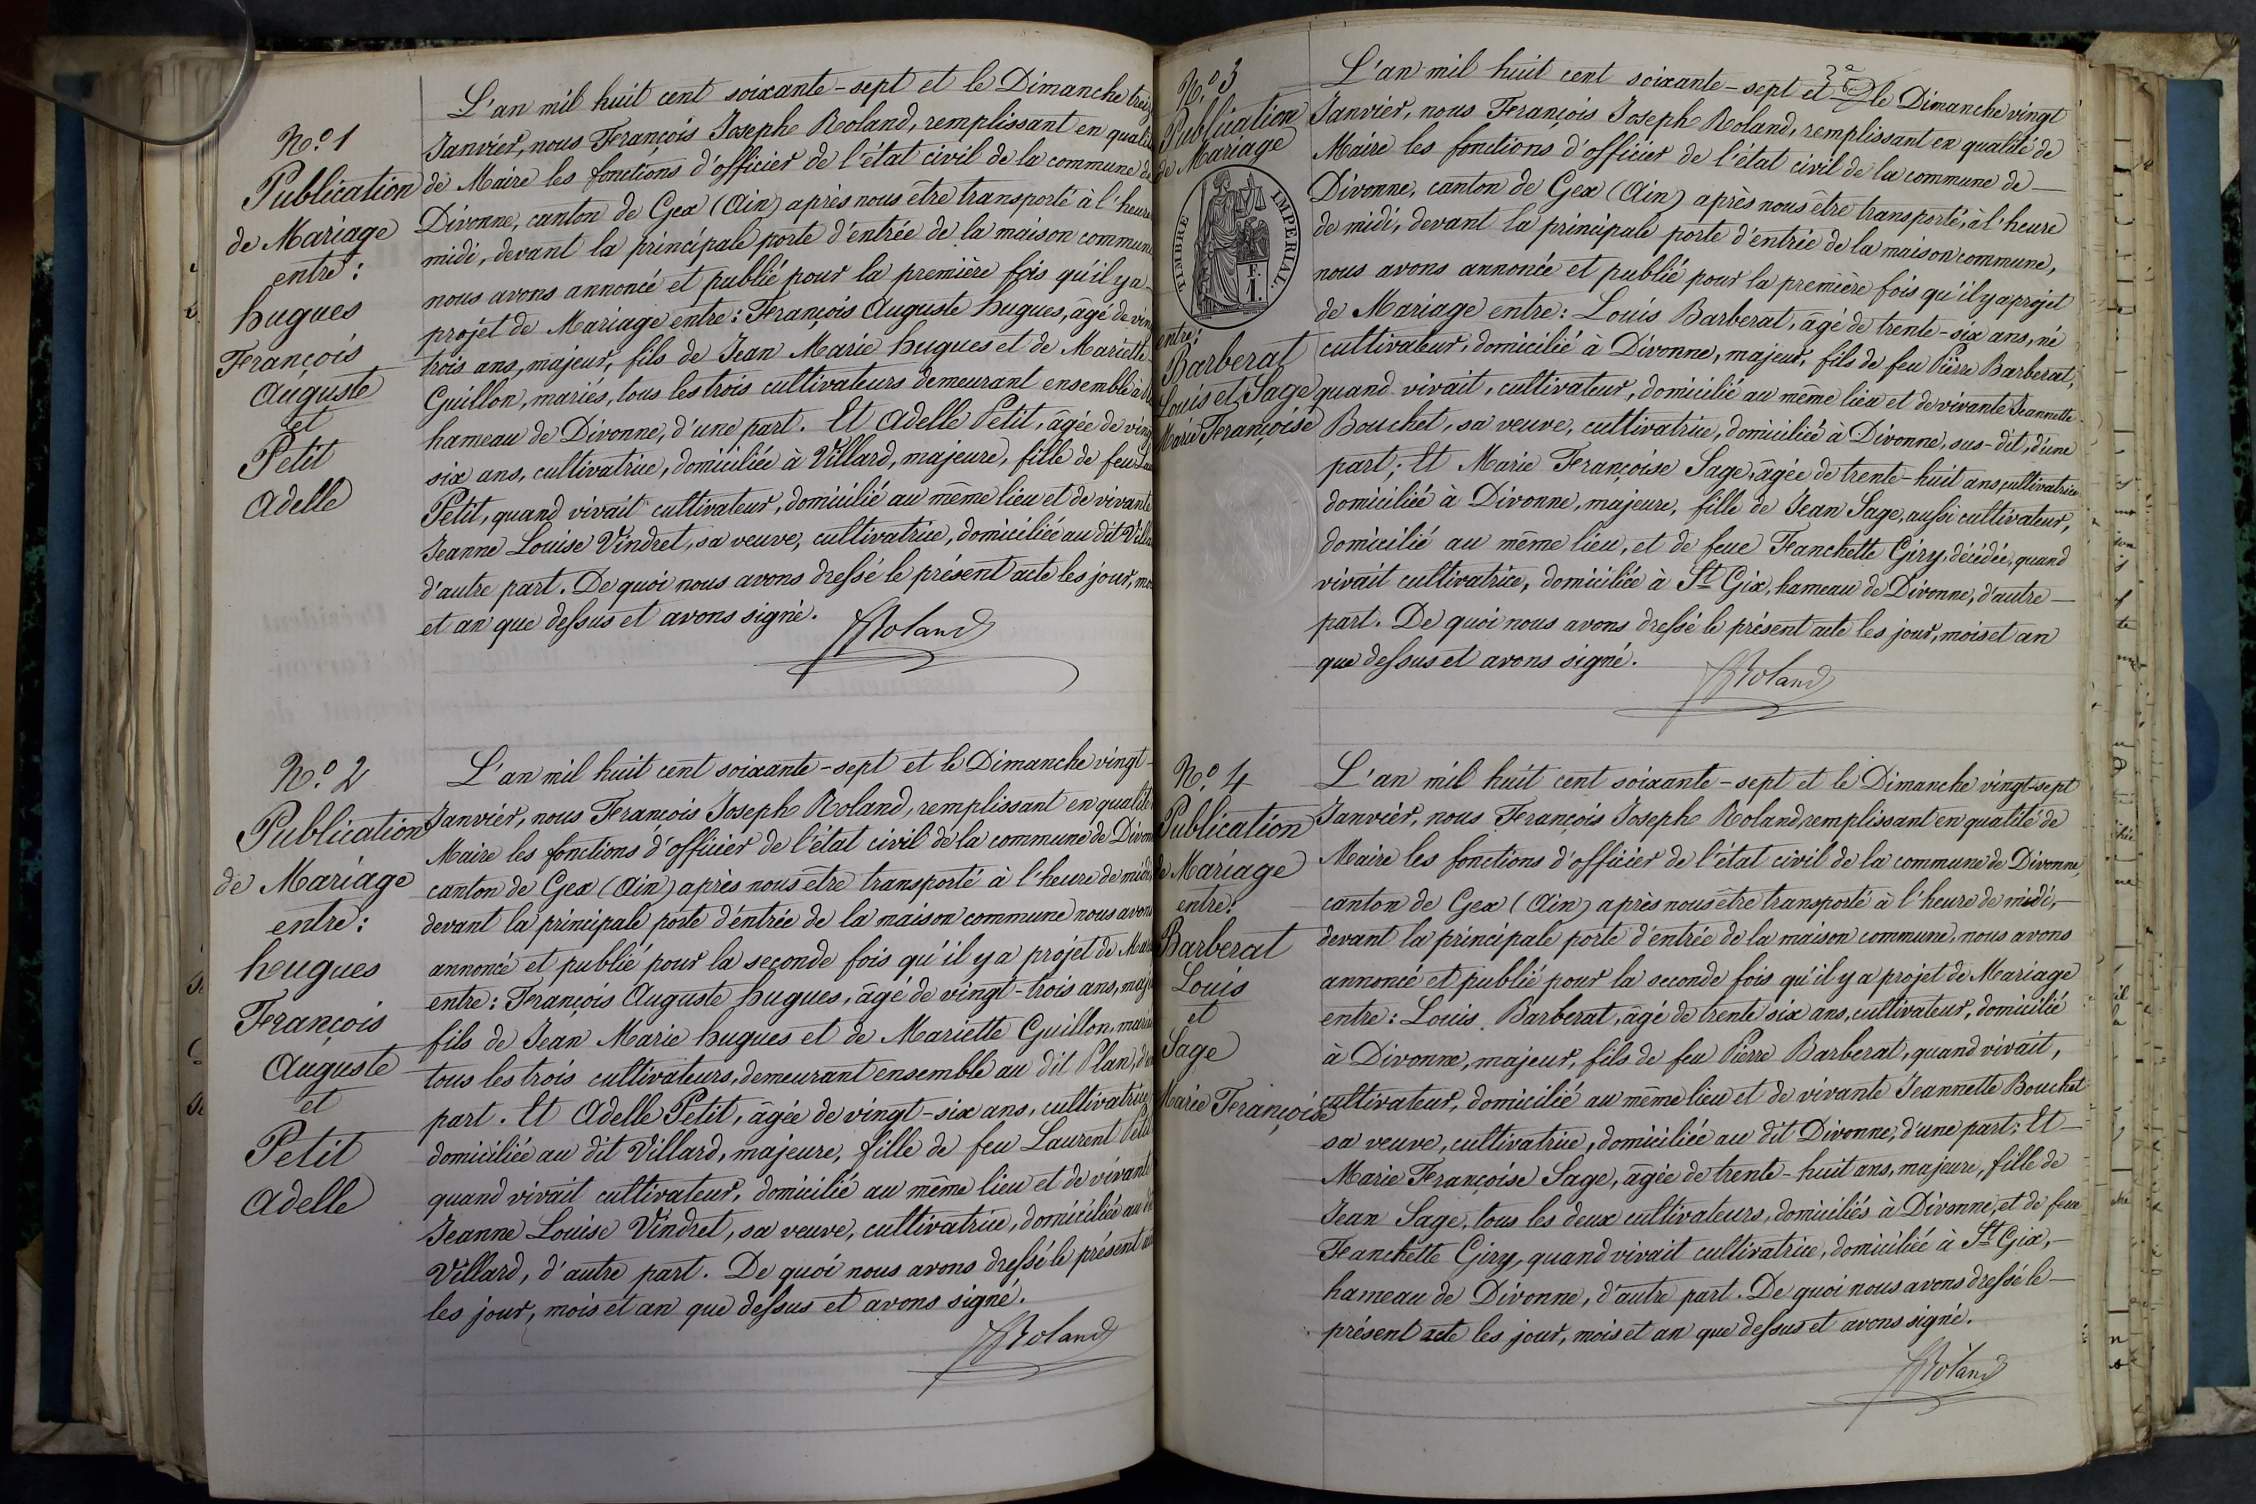 N.o 1
Publication
de Mariage
entre :
Hugues
François
Auguste
et
Petit
Adelle
L'an mil huit cent soixante-sept et le Dimanche
Janvier, nous François Joseph Roland, remplissant en
de Maire les fonctions d'officier de l'état civil de la commune de
Divonne, canton de Gex (Ain) après nous être transporté à l'heure
midi, devant la principale porte d'entrée de la maison commune
nous avons annoncé et publié pour la première fois qu'il y a
projet de Mariage entre : François Auguste Hugues, âgé de
trois ans, majeur, fils de Jean Marie Hugues et de Mariette
Guillon, mariés, tous les trois cultivateurs demeurant ensemble
hameau de Divonne, d'une part. Et Adelle Petit, âgée de
six ans, cultivatrice, domiciliée à Villard, majeure, fille de feu
Petit, quand vivait cultivateur, domicilié au même lieu et de vivante
Jeanne Louise Vindret, sa veuve, cultivatrice, domiciliée au dit
d'autre part. De quoi nous avons dressé le présent acte les jour,
et an que dessus et avons signé.
Roland
N.o 2
Publication
de Mariage
entre :
Hugues
François
Auguste
et
Petit
Adelle
L'an mil huit cent soixante-sept et le Dimanche vingt-
Janvier, nous François Joseph Roland, remplissant en qualité
Maire les fonctions d'officier de l'état civil de la commune de
canton de Gex (Ain) après nous être transporté à l'heure de midi,
devant la principale porte d'entrée de la maison commune nous avons
annoncé et publié pour la seconde fois qu'il y a projet de
entre : François Auguste Hugues, âgé de vingt-trois ans,
fils de Jean Marie Hugues et de Mariette Guillon,
tous les trois cultivateurs, demeurant ensemble au dit Plan,
part. Et Adelle Petit, âgée de vingt-six ans, cultivatrice
domiciliée au dit Villard, majeure, fille de feu Laurent
quand vivait cultivateur, domicilié au même lieu et de vivante
Jeanne Louise Vindret, sa veuve, cultivatrice, domiciliée au
Villard, d'autre part. De quoi nous avons dressé le présent
les jour, mois et an que dessus et avons signé.
Roland
N.o 3
Publication
de Mariage
TIMBRE IMPERIAL.
entre :
Barberat
Louis et Sage
Marie Françoise
L'an mil huit cent soixante-sept et le Dimanche vingt
Janvier, nous François Joseph Roland, remplissant en qualité de
Maire les fonctions d'officier de l'état civil de la commune de
Divonne, canton de Gex (Ain) après nous être transporté, à l'heure
de midi, devant la principale porte d'entrée de la maison commune,
nous avons annoncé et publié pour la première fois qu'il y a projet
de Mariage entre : Louis Barberat, âgé de trente-six ans, né
cultivateur, domicilié à Divonne, majeur, fils de feu Pierre Barberat,
quand vivait, cultivateur, domicilié au même lieu et de vivante Jeannette
Bouchet, sa veuve, cultivatrice, domiciliée à Divonne, sus-dit, d'une
part ; Et Marie Françoise Sage, âgée de trente-huit ans, cultivatrice
domiciliée à Divonne, majeure, fille de Jean Sage, aussi cultivateur,
domicilié au même lieu, et de feue Franchette Giry, décédée, quand
vivait cultivatrice, domiciliée à St Gix, hameau de Divonne, d'autre
part. De quoi nous avons dressé le présent acte les jour, mois et an
que dessus et avons signé.
Roland
N.o 4
Publication
de Mariage
entre :
Barberat
Louis
et
Sage
Marie Françoise
L'an mil huit cent soixante-sept et le Dimanche vingt-sept
Janvier, nous François Joseph Roland, remplissant en qualité de
Maire les fonctions d'officier de l'état civil de la commune de Divonne,
canton de Gex (Ain) après nous être transporté à l'heure de midi,
devant la principale porte d'entrée de la maison commune, nous avons
annoncé et publié pour la seconde fois qu'il y a projet de Mariage
entre : Louis Barberat, âgé de trente six ans, cultivateur, domicilié
à Divonne, majeur, fils de feu Pierre Barberat, quand vivait,
cultivateur, domicilié au même lieu et de vivante Jeannette Bouchet
sa veuve, cultivatrice, domiciliée au dit Divonne, d'une part ; Et
Marie Françoise Sage, âgée de trente-huit ans, majeure, fille de
Jean Sage, tous les deux cultivateurs, domiciliés à Divonne, et de feue
Franchette Giry, quand vivait cultivatrice, domiciliée à St Gix,
hameau de Divonne, d'autre part. De quoi nous avons dressé le
présent acte les jour, mois et an que dessus et avons signé.
Roland